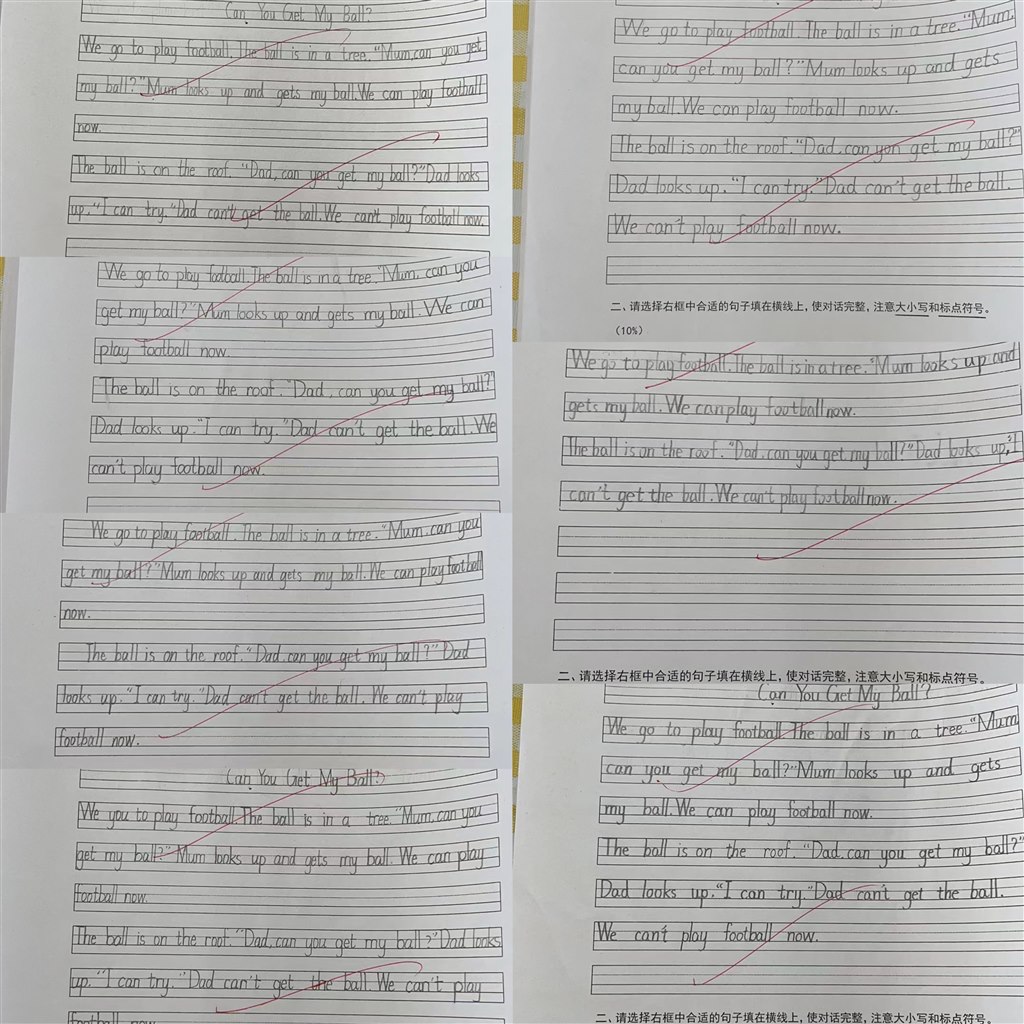 Can You Get My Ball?
We go to play football. The ball is in a tree. "Mum, can you get
my ball?" Mum looks up and gets my ball. We can play football
now.
The ball is on the roof. "Dad, can you get my ball?" Dad looks
up. "I can try." Dad can't get the ball. We can't play football now.
We go to play football. The ball is in a tree. "Mum, can you
get my ball?" Mum looks up and gets my ball. We can
play football now.
The ball is on the roof. "Dad, can you get my ball?"
Dad looks up. "I can try." Dad can't get the ball. We
can't play football now.
We go to play football. The ball is in a tree. "Mum, can you
get my ball?" Mum looks up and gets my ball. We can play football
now.
The ball is on the roof. "Dad, can you get my ball?" Dad
looks up. "I can try." Dad can't get the ball. We can't play
football now.
Can You Get My Ball?
We you to play football. The ball is in a tree. "Mum, can you
get my ball?" Mum looks up and gets my ball. We can play
football now.
The ball is on the roof. "Dad, can you get my ball?" Dad looks
up. "I can try." Dad can't get the ball. We can't play
football now.
We go to play football. The ball is in a tree. "Mum,
can you get my ball?" Mum looks up and gets
my ball. We can play football now.
The ball is on the roof. "Dad, can you get my ball?"
Dad looks up. "I can try." Dad can't get the ball.
We can't play football now.
二、请选择右框中合适的句子填在横线上，使对话完整，注意大小写和标点符号。
（10%）
We go to play football. The ball is in a tree. "Mum looks up and
gets my ball. We can play football now.
The ball is on the roof. "Dad, can you get my ball?" Dad looks up, "I
can't get the ball. We can't play football now.
二、请选择右框中合适的句子填在横线上，使对话完整，注意大小写和标点符号。
Can You Get My Ball?
We go to play football. The ball is in a tree. "Mum
can you get my ball?" Mum looks up and gets
my ball. We can play football now.
The ball is on the roof. "Dad, can you get my ball?"
Dad looks up. "I can try." Dad can't get the ball.
We can't play football now.
二、请选择右框中合适的句子填在横线上，使对话完整，注意大小写和标点符号。